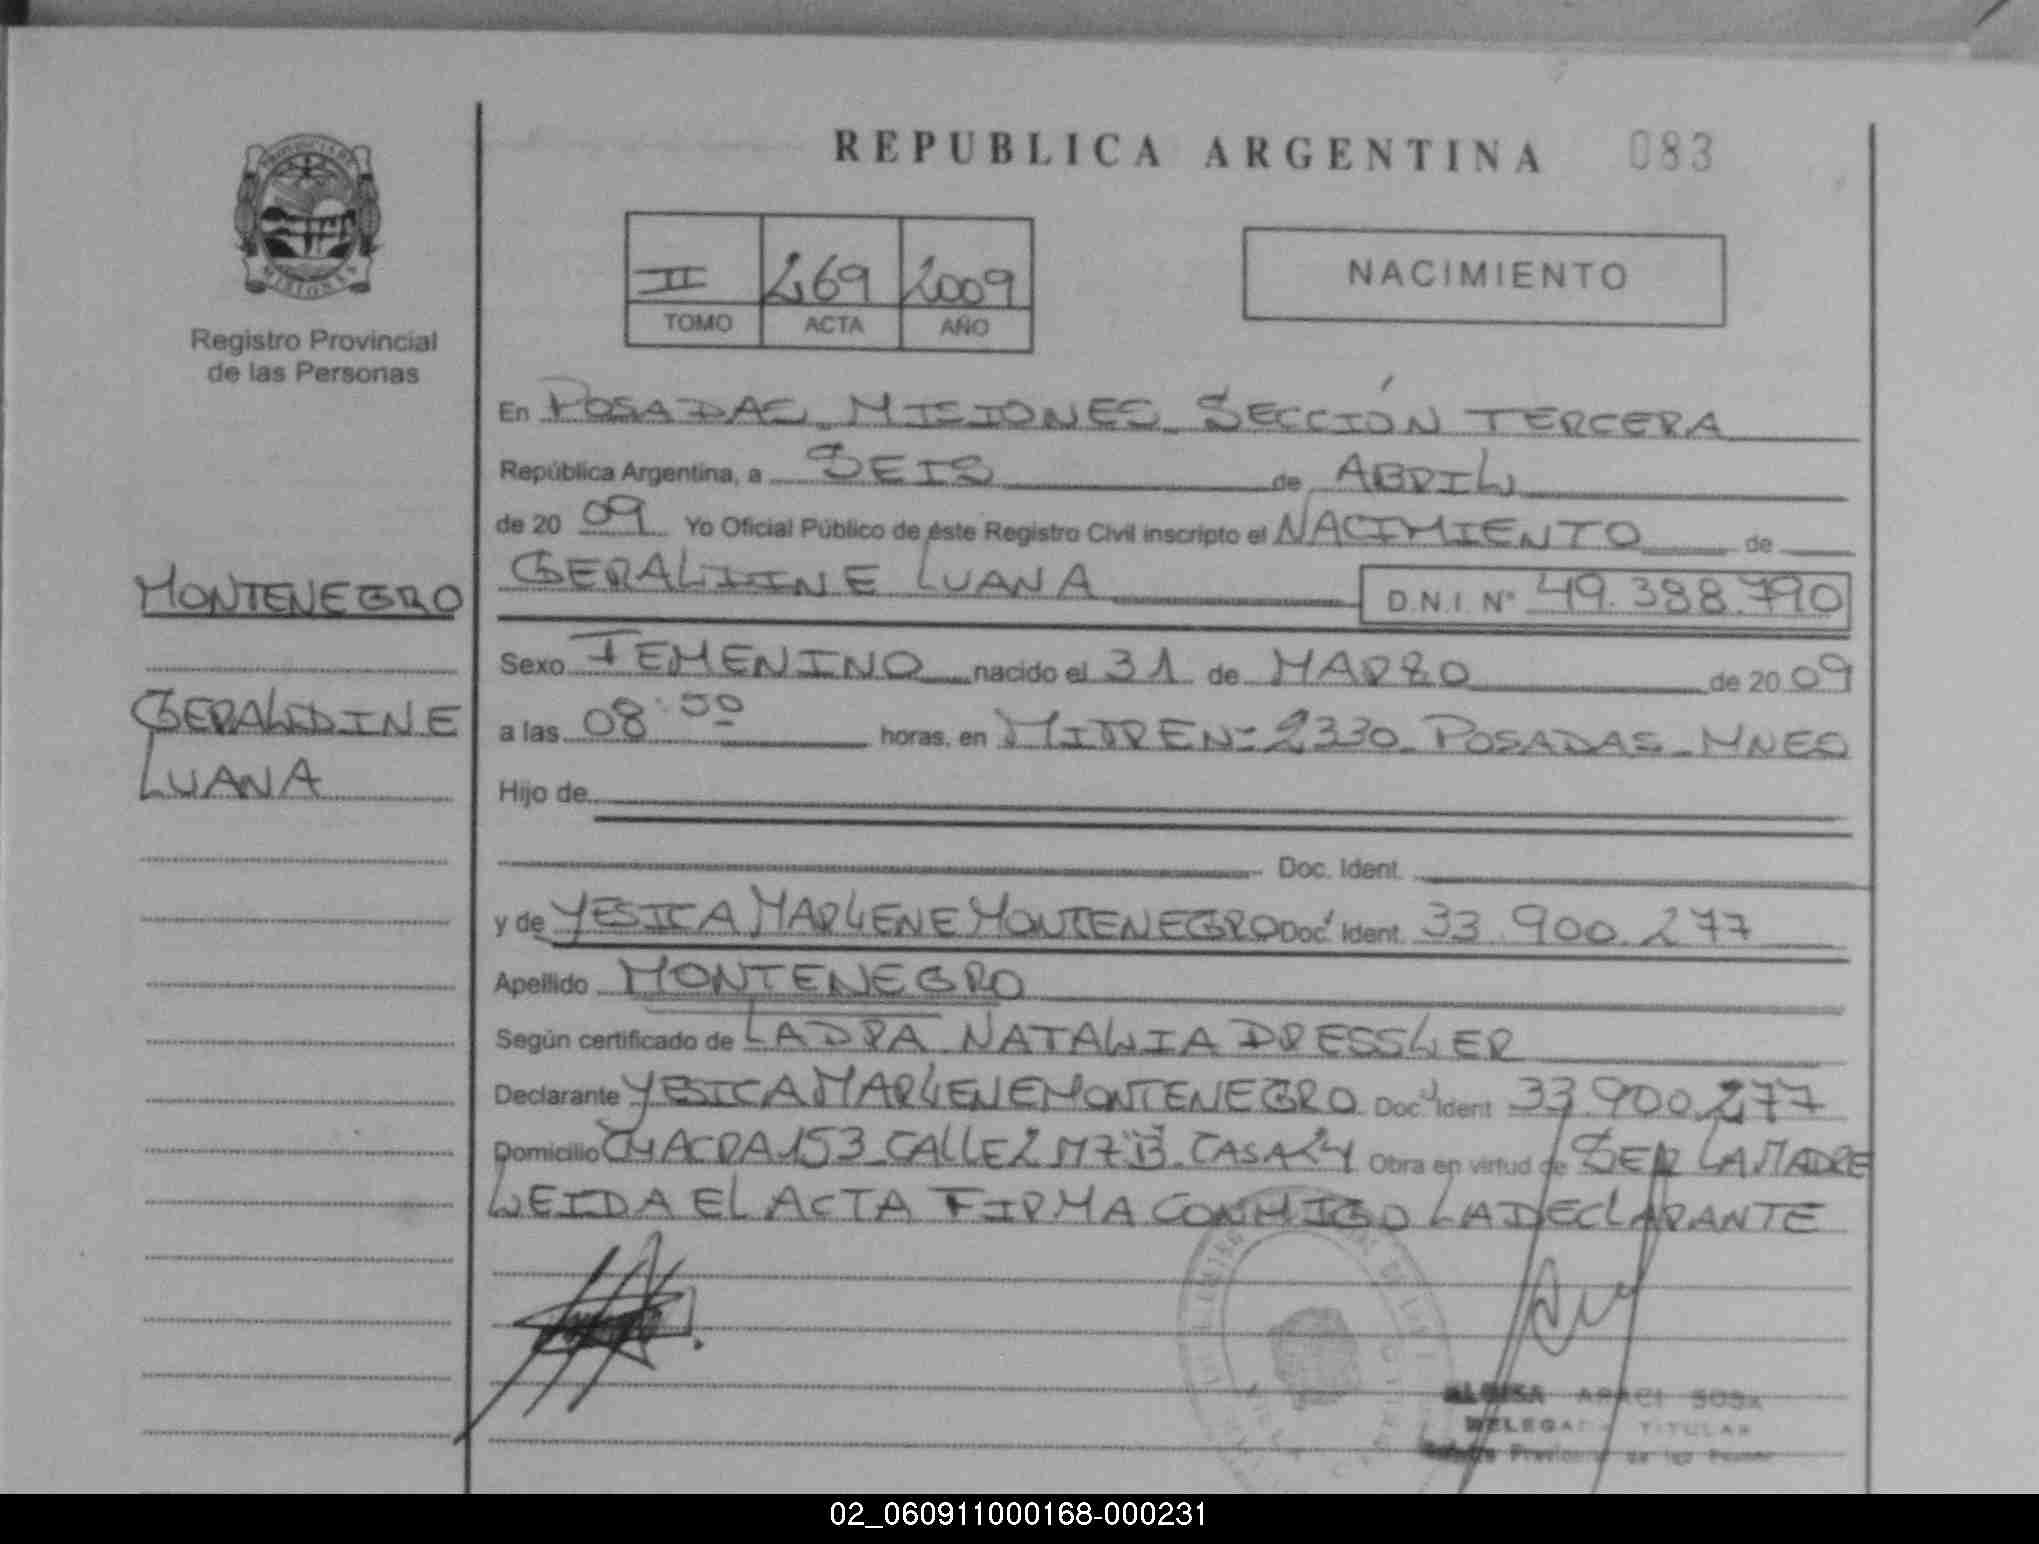 REPUBLICA ARGENTINA 083
PROVINCIA DE
MISIONES
Registro Provincial
de las Personas
II 269 2009
TOMO ACTA AÑO
NACIMIENTO
En POSADAS MISIONES SECCIÓN TERCERA
República Argentina, a SEIS de ABRIL
de 20 09 Yo Oficial Público de éste Registro Civil inscripto el NACIMIENTO de
GERALDINE LUANA D.N.I. Nº 49.388.790
MONTENEGRO
GERALDINE
LUANA
Sexo FEMENINO nacido el 31 de MARZO de 20 09
a las 08:50 horas, en MITRE Nº 2330 POSADAS MNES
Hijo de
Doc. Ident.
y de YESICA MARLENE MONTENEGRO Doc. Ident. 33.900.277
Apellido MONTENEGRO
Según certificado de LADRA NATALIA DRESSLER
Declarante YESICA MARLENE MONTENEGRO Doc. Ident 33.900.277
Domicilio CHACRA 153 CALLE 2 M7 "B" CASA 24 Obra en virtud de SER LA MADRE
LEIDA EL ACTA FIRMA CONMIGO LA DECLARANTE
ARACI SOSA
DELEGADA TITULAR
02_060911000168-000231